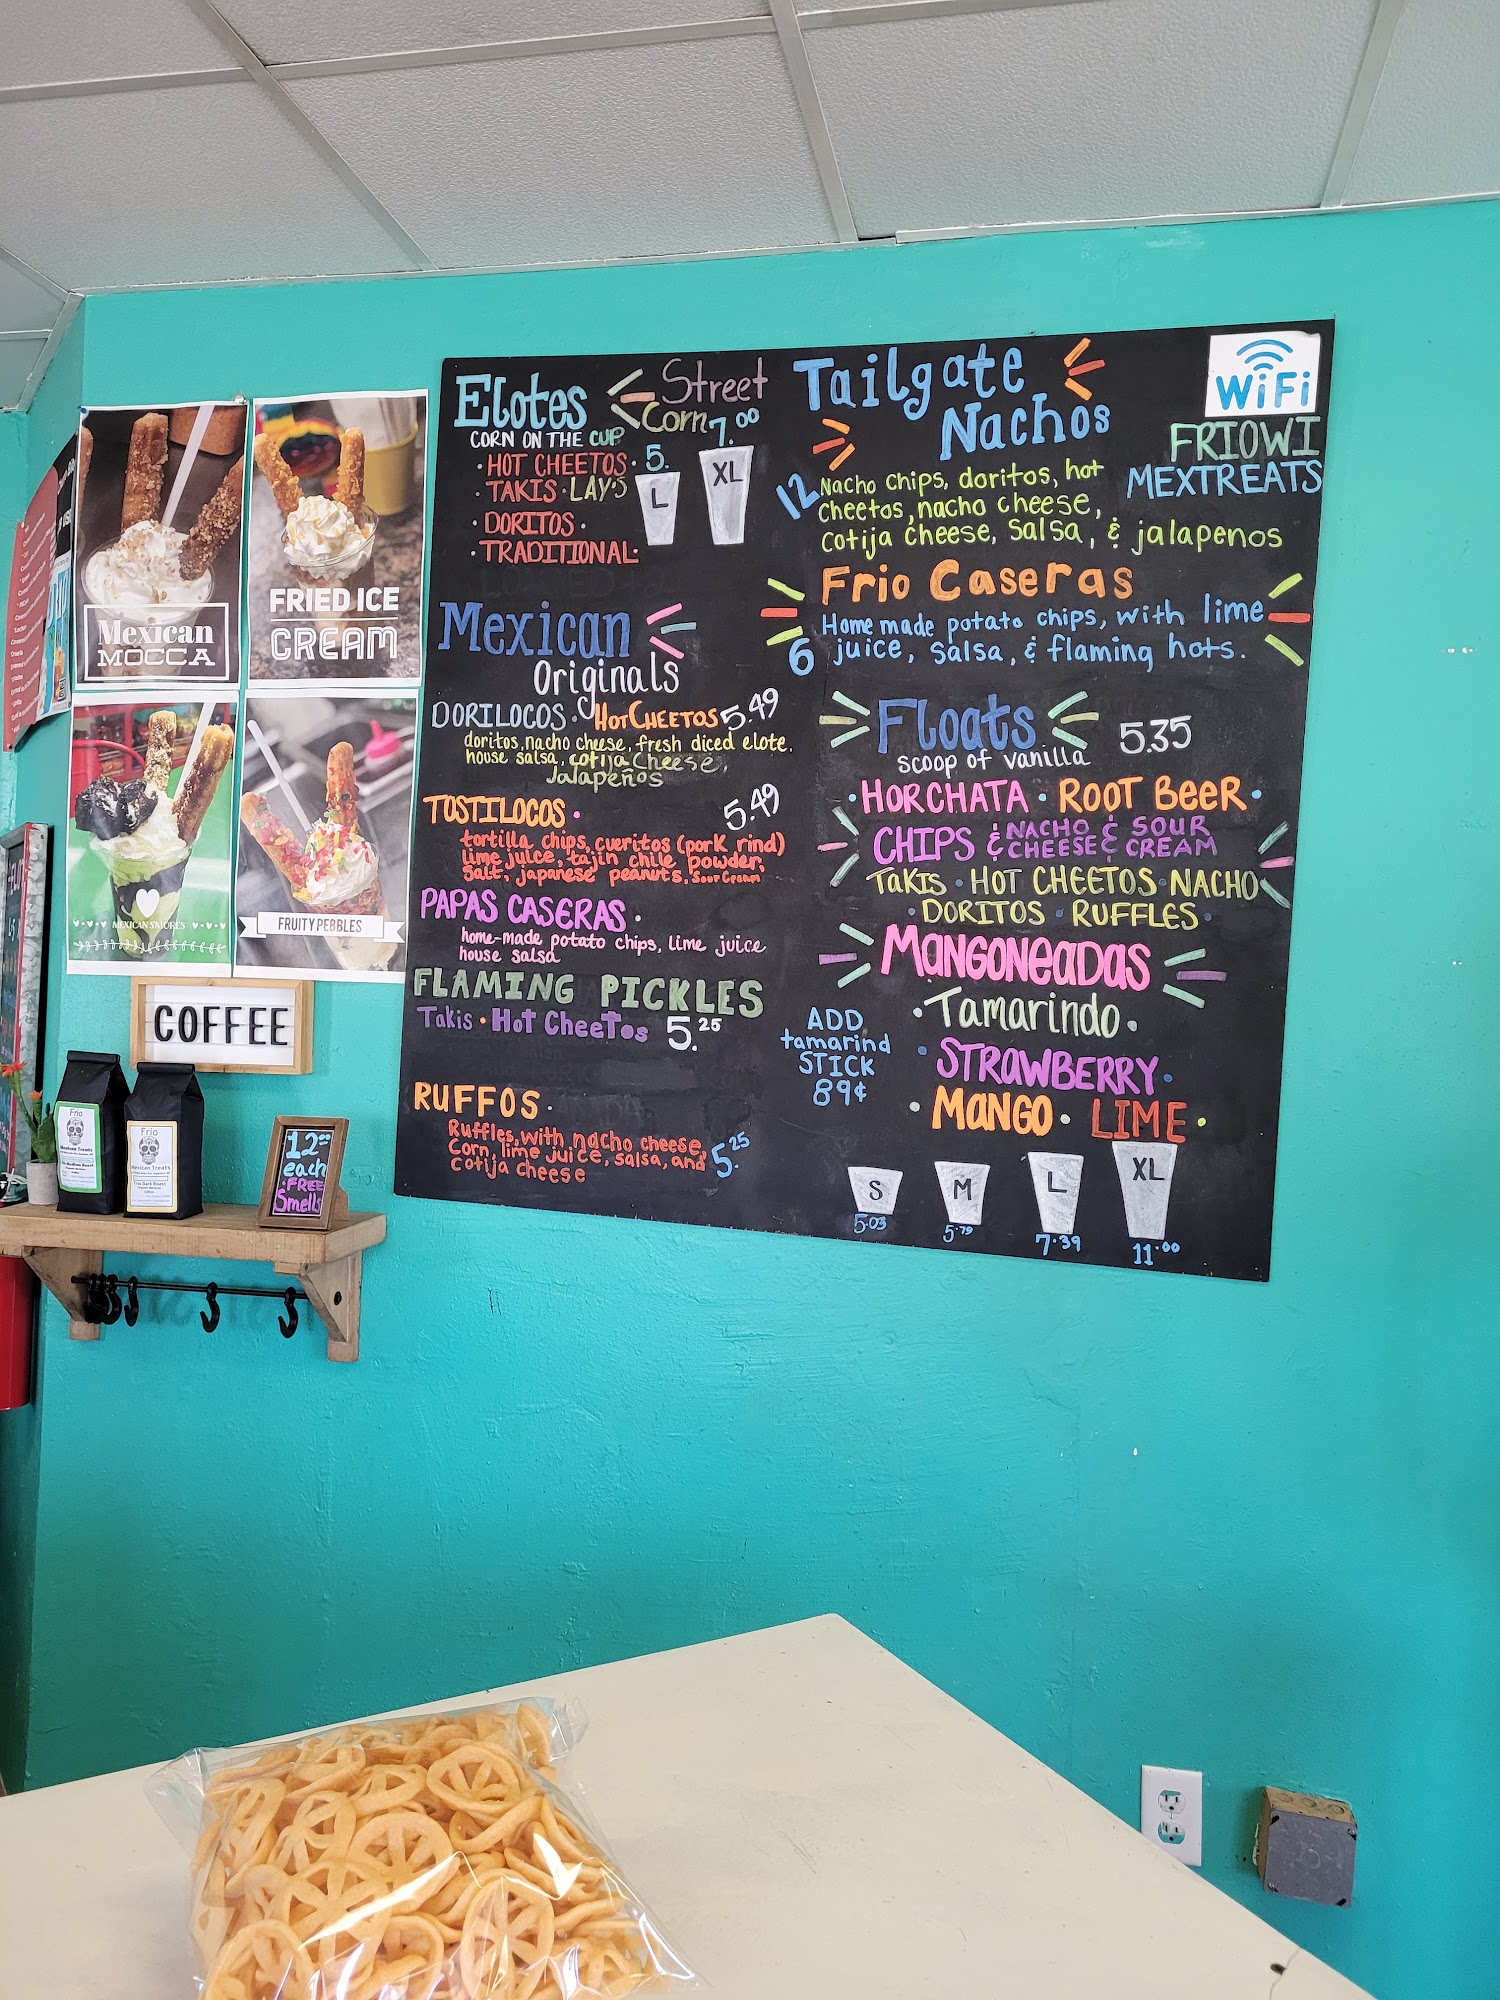 Mexican
MOCCA
FRIED ICE
CREAM
MEXICAN S'MORES
FRUITY PEBBLES
COFFEE
Frio
Mexican Treats
Frio
Mexican Treats
Frio Dark Roast
12.00
each
·FREE
Smells
Elotes
Street
Corn
CORN ON THE CUP
7.00
· HOT CHEETOS ·
5.
· TAKIS · LAY'S
· DORITOS ·
· TRADITIONAL ·
L
XL
Mexican
Originals
DORILOCOS · HOT CHEETOS 5.49
doritos, nacho cheese, fresh diced elote,
house salsa, cotija cheese,
Jalapeños
TOSTILOCOS · 5.49
tortilla chips, cueritos (pork rind)
lime juice, tajin chile powder,
salt, japanese peanuts, Sour Cream
PAPAS CASERAS ·
home-made potato chips, lime juice
house salsa
FLAMING PICKLES
Takis · Hot Cheetos 5.25
RUFFOS ·
Ruffles, with nacho cheese,
Corn, lime juice, salsa, and
cotija cheese
5.25
Tailgate
Nachos
12
Nacho chips, doritos, hot
cheetos, nacho cheese,
cotija cheese, salsa, & jalapenos
WiFi
FRIOWI
MEXTREATS
Frio Caseras
6
Home made potato chips, with lime
juice, salsa, & flaming hots.
Floats
5.35
scoop of vanilla
· HORCHATA · ROOT BEER ·
CHIPS & NACHO CHEESE & SOUR CREAM
TAKIS · HOT CHEETOS · NACHO
· DORITOS · RUFFLES ·
MANGONEADAS
· Tamarindo ·
· STRAWBERRY ·
· MANGO · LIME ·
ADD
tamarind
STICK
89¢
S
M
L
XL
5.03
5.79
7.39
11.00